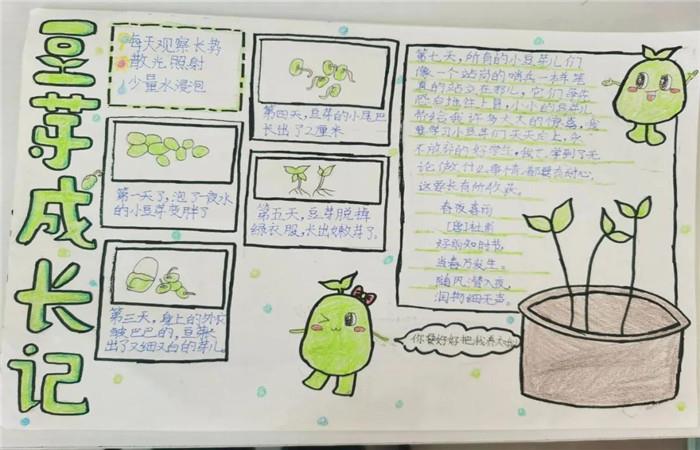 豆芽成长记
每天观察长势
散光照射
少量水浸泡
第一天了,泡了一夜水
的小豆芽变胖了
第三天,身上的外衣
皱巴巴的,豆芽
出了又细又白的芽儿
第四天,豆芽的小尾巴
长出了2厘米
第五天,豆芽脱掉
绿衣服,长出嫩芽了。
第七天,所有的小豆芽儿们
像一个站岗的哨兵一样笔
直的站立在那儿,它们每天
向上,小小的豆芽儿
带给我许多大大的惊喜,我
要学习小豆芽们天天向上,永
不放弃的好学生,我学到了无
论做什么事情都要有耐心,
这要长有所收获。
春夜喜雨
[唐]杜甫
好雨知时节,
当春乃发生。
随风潜入夜,
润物细无声。
你要好好把我养大哦